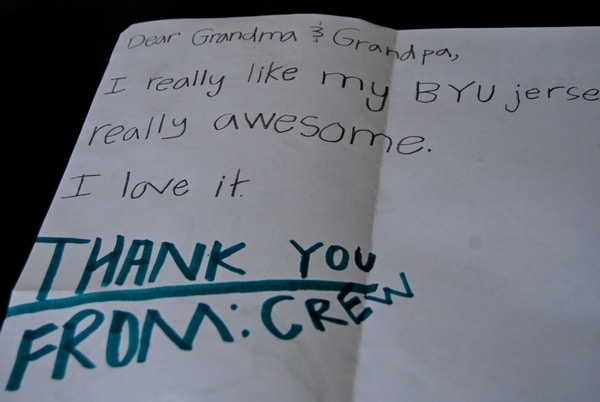 Dear Grandma & Grandpa,
I really like my BYU jerse
really awesome.
I love it.
THANK YOU
FROM: CREW